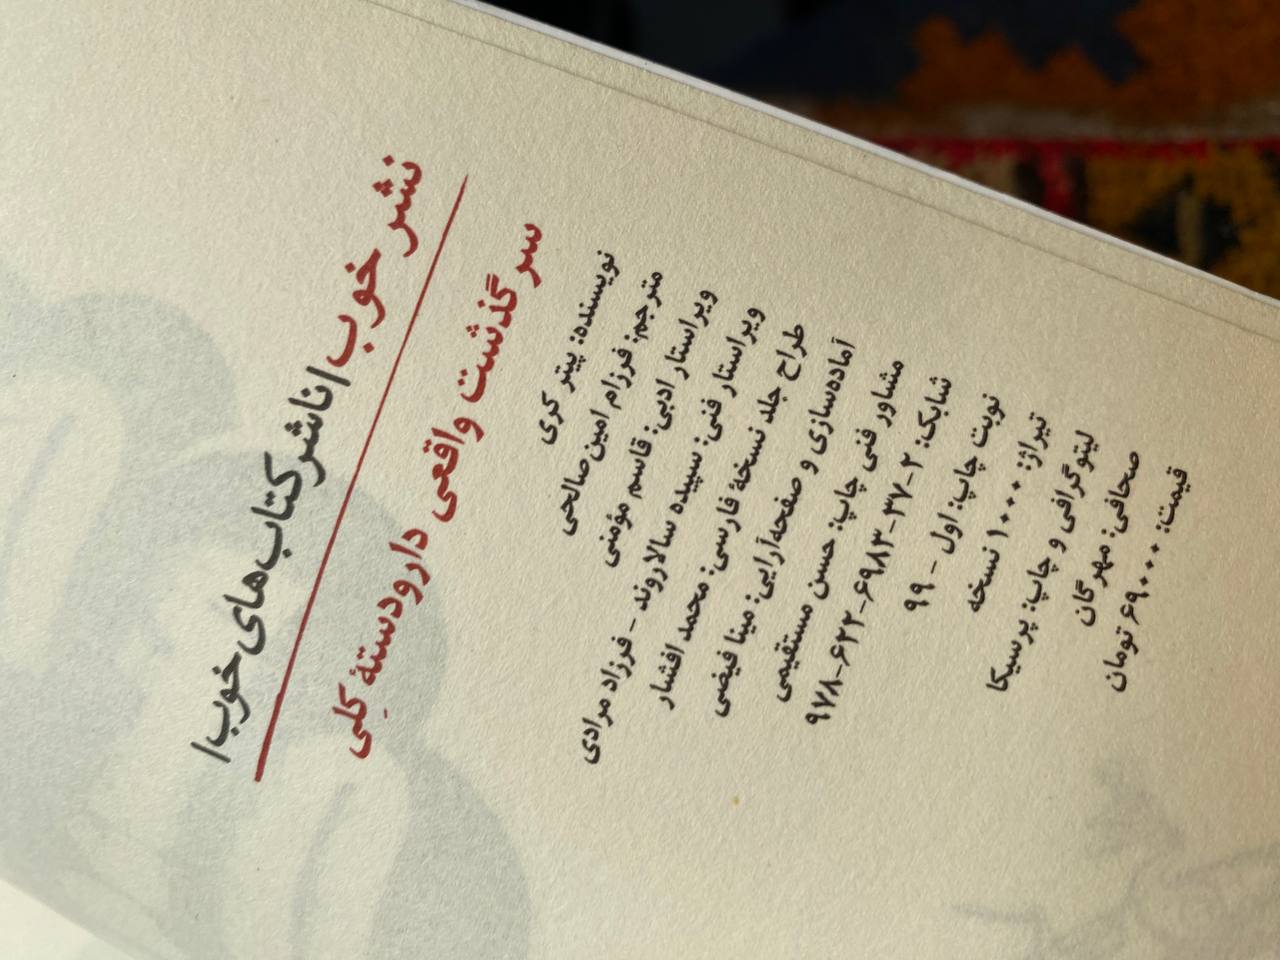 نشر خوب / ناشر کتاب‌های خوب /
سرگذشت واقعی دارودستهٔ کِلی
نویسنده: پیتر کری
مترجم: فرزام امین‌صالحی
ویراستار ادبی: قاسم مؤمنی
ویراستار فنی: سپیده سالاروند - فرزاد مرادی
طراح جلد نسخهٔ فارسی: محمد افشار
آماده‌سازی و صفحه‌آرایی: مینا فیضی
مشاور فنی چاپ: حسن مستقیمی
شابک: ۲-۳۷-۶۹۸۳-۶۲۲-۹۷۸
نوبت چاپ: اول - ۹۹
تیراژ: ۱۰۰۰ نسخه
لیتوگرافی و چاپ: پرسیکا
صحافی: مهرگان
قیمت: ۶۹۰۰۰ تومان